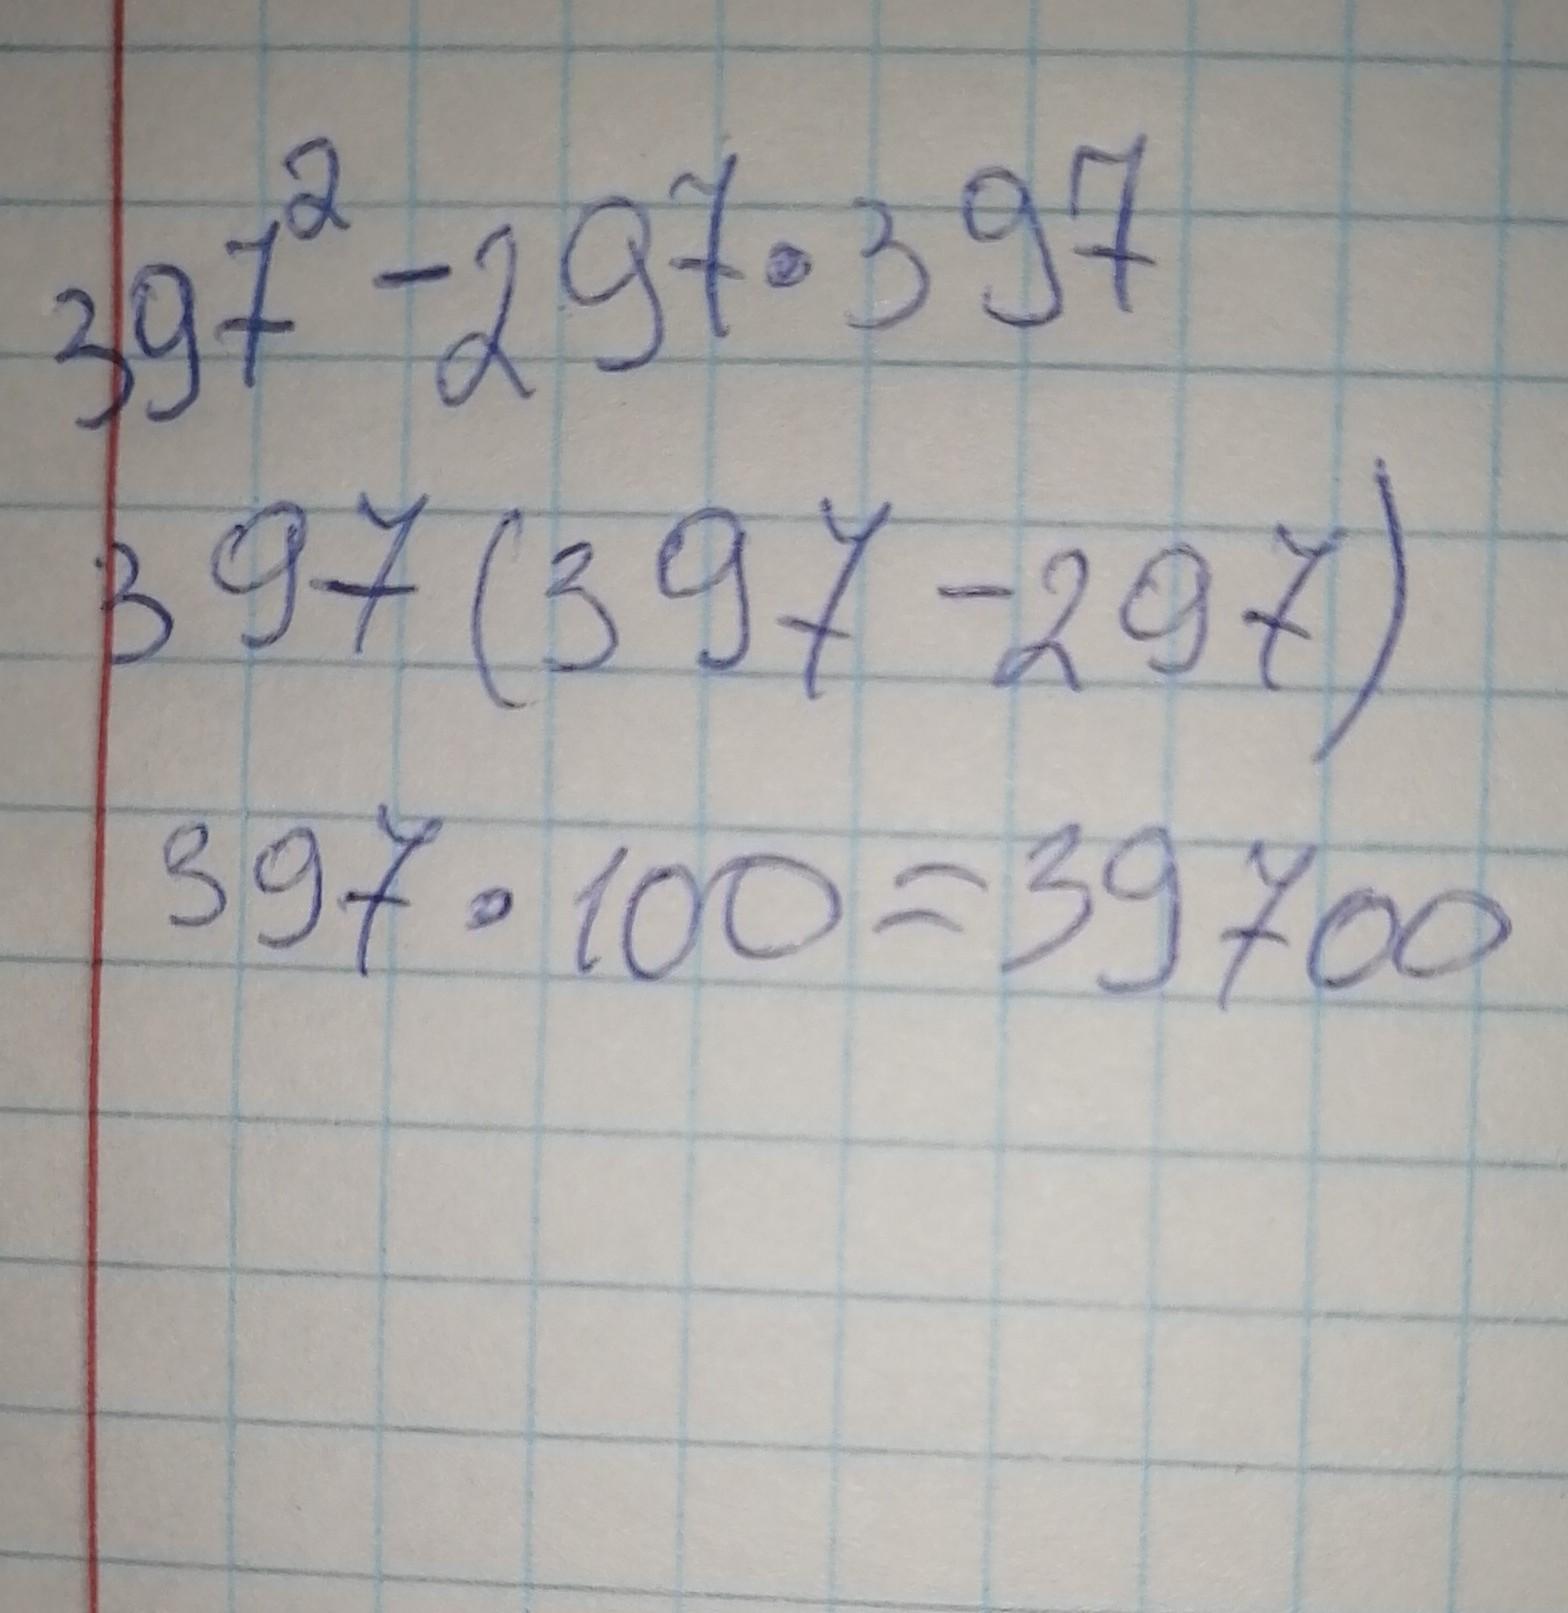 397² - 297 · 397
397(397 - 297)
397 · 100 = 39700